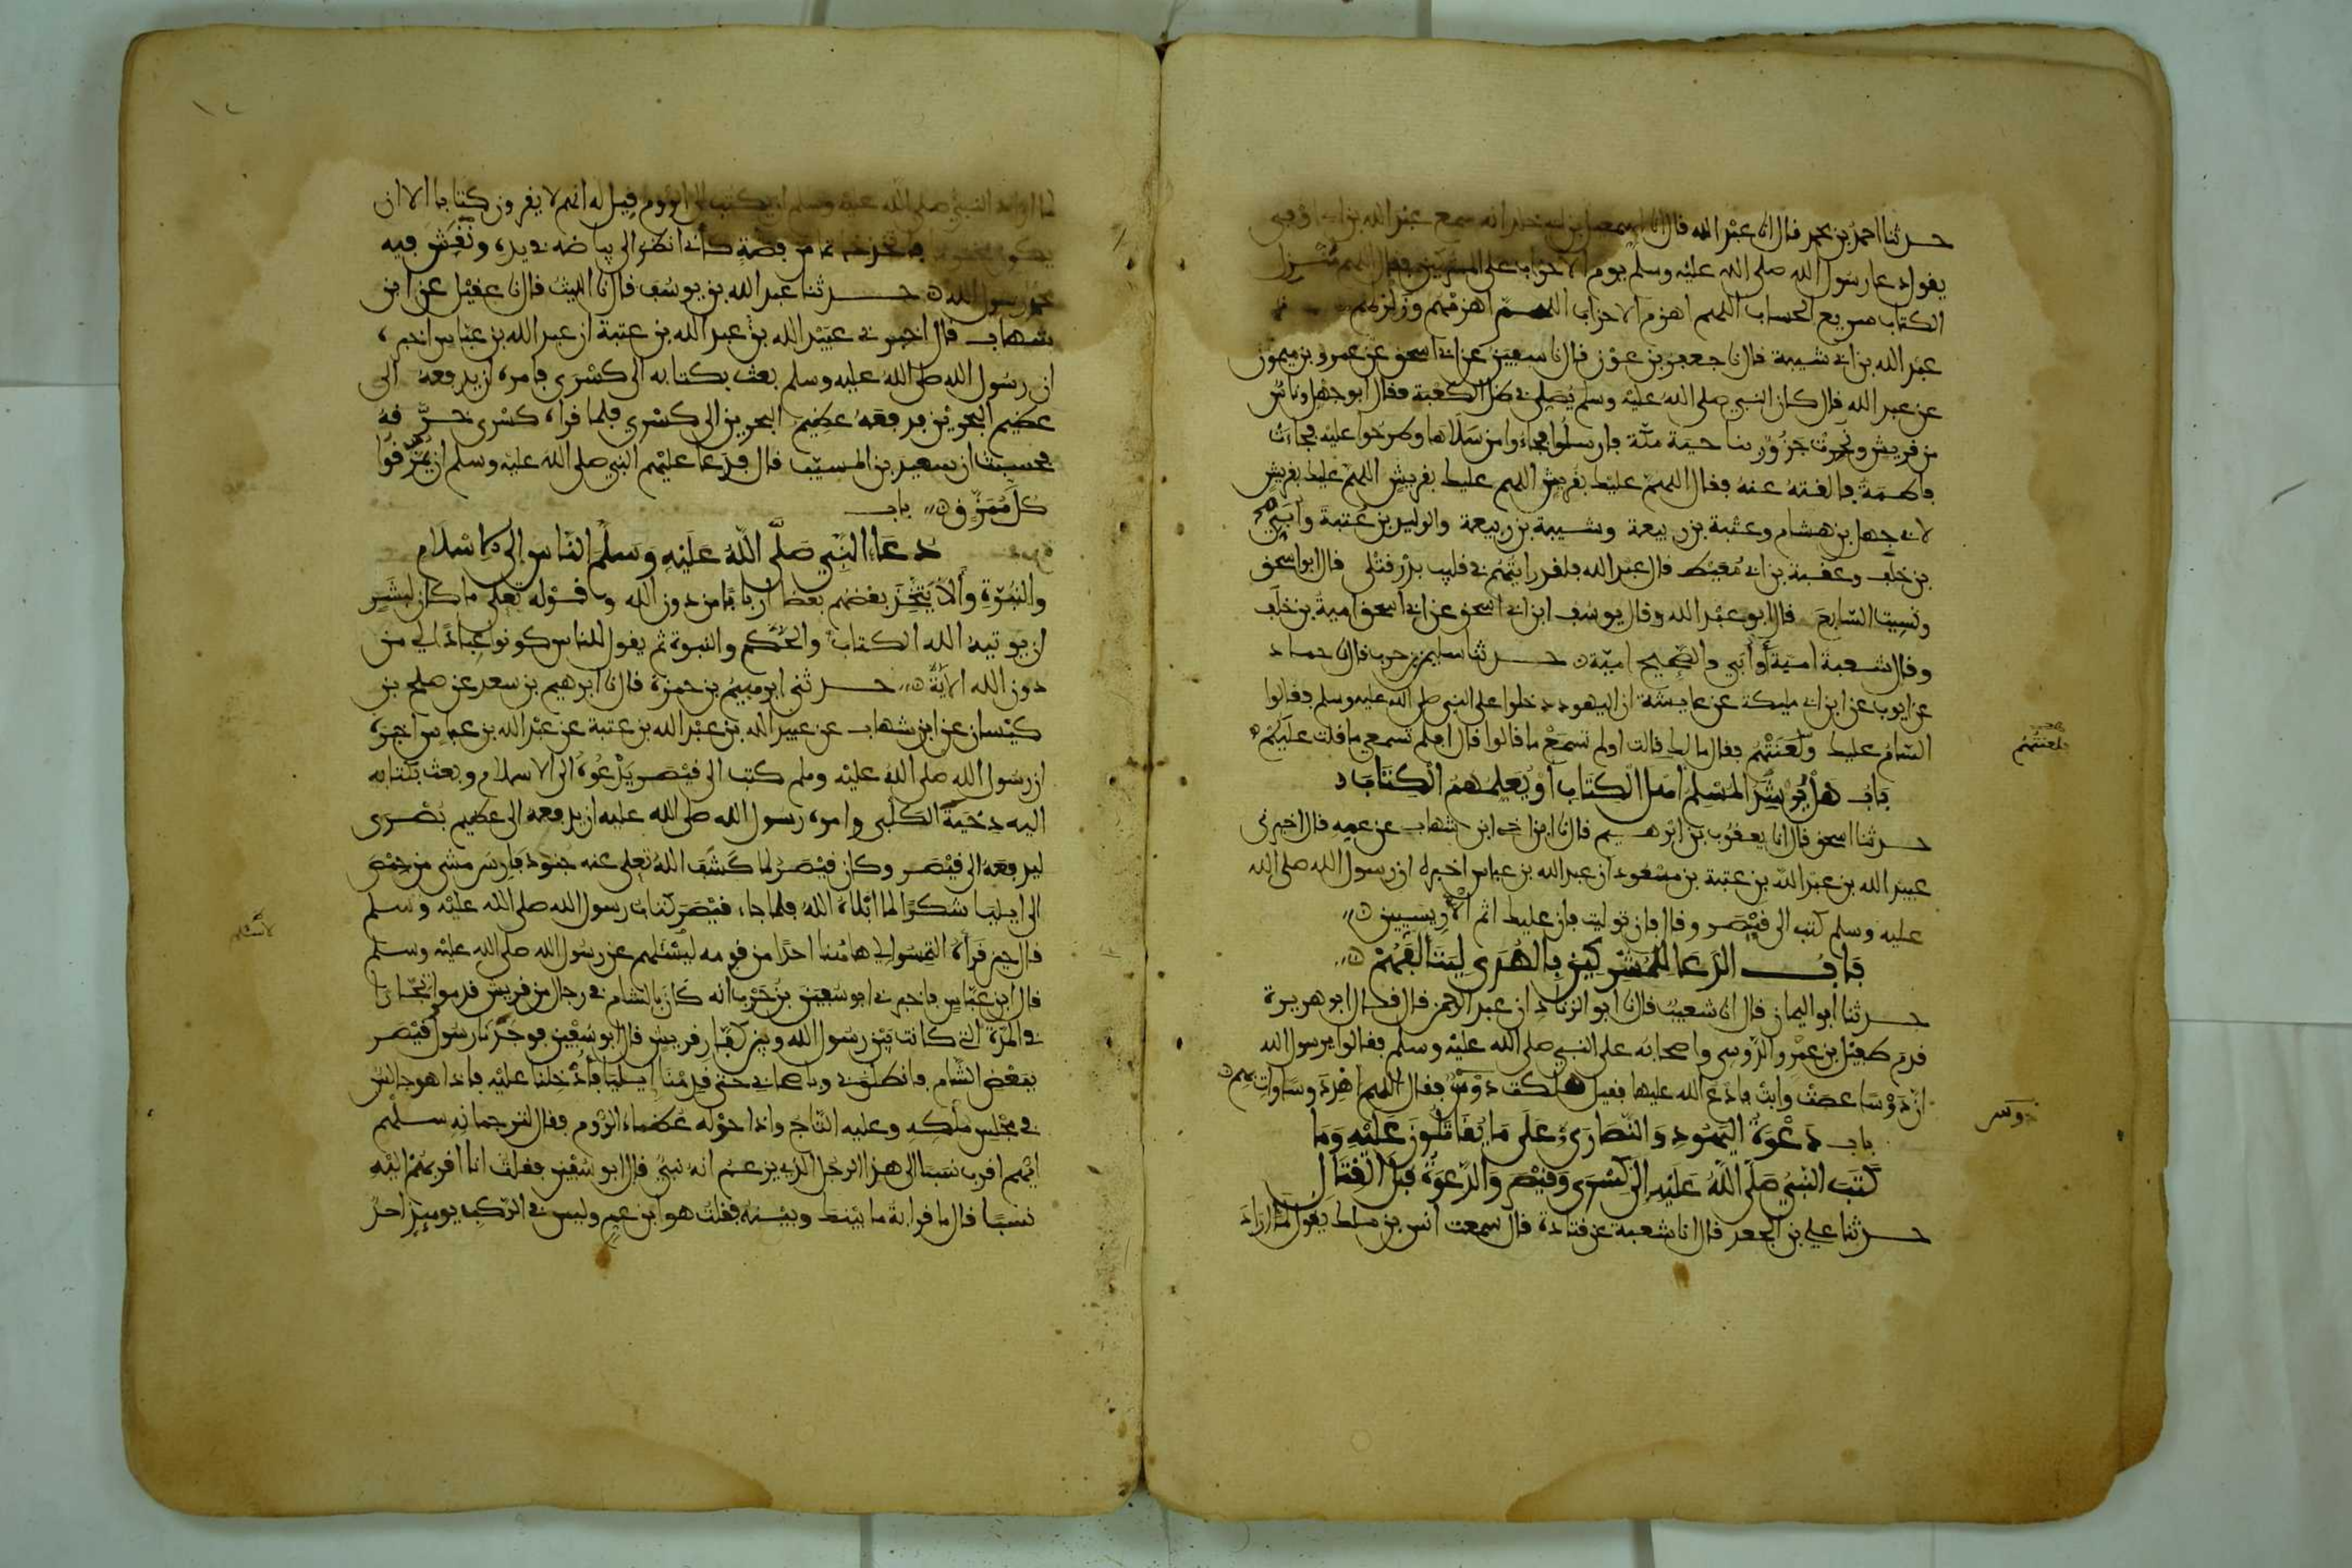 حدثنا احمد بن محمد قال انا عبد الله قال انا اسمعيل بن ابي خالد انه سمع عبد الله بن ابي اوفى
يقول دعا رسول الله صلى الله عليه وسلم يوم الاحزاب على المشركين فقال اللهم منزل
الكتاب سريع الحساب اللهم اهزم الاحزاب اللهم اهزمهم وزلزلهم
عبد الله بن ابي شيبة قال نا جعفر بن عون قال نا سفين عن ابي اسحق عن عمرو بن ميمون
عن عبد الله قال كان النبي صلى الله عليه وسلم يصلي في ظل الكعبة فقال ابو جهل وناس
من قريش ونحرت جزور بنا حية مكة فارسلوا فجاءوا من سلاها وطرحوا عليه فجاءت
فاطمة فالقته عنه فقال اللهم عليك بقريش اللهم عليك بقريش اللهم عليك بقريش
لابي جهل بن هشام وعتبة بن ربيعة وشيبة بن ربيعة والوليد بن عتبة وابي
بن خلف وعقبة بن ابي معيط قال عبد الله فلقد رايتهم في قليب بدر قتلى قال ابو اسحق
ونسيت السابع قال ابو عبد الله وقال يوسف ابن ابي اسحق عن ابي اسحق امية بن خلف
وقال شعبة امية أو أبي والصحيح امية حدثنا سليمن بن حرب قال نا حماد
عن ايوب عن ابن ابي مليكة عن عايشة ان اليهود دخلوا على النبي صلى الله عليه وسلم فقالوا
السام عليك ولعنتهم فقال ما لك قالت اولم تسمع ما قالوا قال افلم تسمعي ما قلت عليكم
فلعنتهم
باب هل يرشد المسلم اهل الكتاب أو يعلمهم الكتاب
حدثنا اسحق قال انا يعقوب بن ابرهيم قال نا ابن اخي ابن شهاب عن عمه قال اخبرني
عبيد الله بن عبد الله بن عتبة بن مسعود ان عبد الله بن عباس اخبره ان رسول الله صلى الله
عليه وسلم كتب الى قيصر وقال فان توليت فان عليك اثم الأريسيين
باب الدعا للمشركين بالهدى ليتالفهم
حدثنا أبو اليمان قال انا شعيب قال نا ابو الزناد ان عبد الرحمن قال قال ابو هريرة
قدم طفيل بن عمرو الدوسي واصحابه على النبي صلى الله عليه وسلم فقالوا يرسول الله
ان دوسا عصت وابت فادع الله عليها فقيل هلكت دوس فقال اللهم اهد دوسا وات بهم
دوس
باب دعوة اليهود والنصارى وعلى ما يقاتلون عليه وما
كتب النبي صلى الله عليه إلى كسرى وقيصر والدعوة قبل القتال
حدثنا علي بن الجعد قال انا شعبة عن قتادة قال سمعت انس بن ملك يقول لما اراد
لما اراد النبي صلى الله عليه وسلم ان يكتب الى الروم قيل له انهم لا يقرون كتابا الا ان
يكون مختوما فاتخذ خاتما من فضة كأني انظر الى بياضه في يده ونقش فيه
محمد رسول الله حدثنا عبد الله بن يوسف قال نا الليث قال نا عقيل عن ابن
شهاب قال اخبرني عبيد الله بن عبد الله بن عتبة ان عبد الله بن عباس اخبره
ان رسول الله صلى الله عليه وسلم بعث بكتابه الى كسرى فامره ان يدفعه الى
عظيم البحرين فدفعه عظيم البحرين الى كسرى فلما قراه كسرى خرقه
فحسبت ان سعيد بن المسيب قال فدعا عليهم النبي صلى الله عليه وسلم ان يمزقوا
كل ممزق باب
دعاء النبي صلى الله عليه وسلم الناس إلى الاسلام
والنبوة وألا يتخذ بعضهم بعضا اربابا من دون الله وقوله تعلى ما كان لبشر
ان يوتيه الله الكتاب والحكم والنبوة ثم يقول للناس كونوا عبادا لي من
دون الله الآية حدثني ابرهيم بن حمزة قال نا ابرهيم بن سعد عن صلح بن
كيسان عن ابن شهاب عن عبيد الله بن عبد الله بن عتبة عن عبد الله بن عباس اخبره
ان رسول الله صلى الله عليه وسلم كتب الى قيصر يدعوه الى الاسلام وبعث بكتابه
اليه دحية الكلبي وامره رسول الله صلى الله عليه ان يدفعه الى عظيم بصرى
ليدفعه الى قيصر وكان قيصر لما كشف الله تعلى عنه جنود فارس مشى من حمص
الى ايليا شكرا لما ابلاه الله فلما جاء قيصر كتاب رسول الله صلى الله عليه وسلم
قال حين قرأه التمسوا لي هاهنا احدا من قومه ليسئلهم عن رسول الله صلى الله عليه وسلم
قال ابن عباس فاخبرني ابو سفين بن حرب أنه كان بالشام في رجال من قريش قدموا تجارا
في المدة التي كانت بين رسول الله وبين كفار قريش قال ابو سفين فوجدنا رسول قيصر
ببعض الشام فانطلق بي وباصحابي حتى قدمنا إيليا فأدخلنا عليه فاذا هو جالس
في مجلس ملكه وعليه التاج واذا حوله عظماء الروم فقال لترجمانه سلهم
ايهم اقرب نسبا الى هذا الرجل الذي يزعم انه نبي قال ابو سفين فقلت انا اقربهم اليه
نسبا قال ما قرابة ما بينك وبينه فقلت هو ابن عم وليس في الركب يوميذ احد